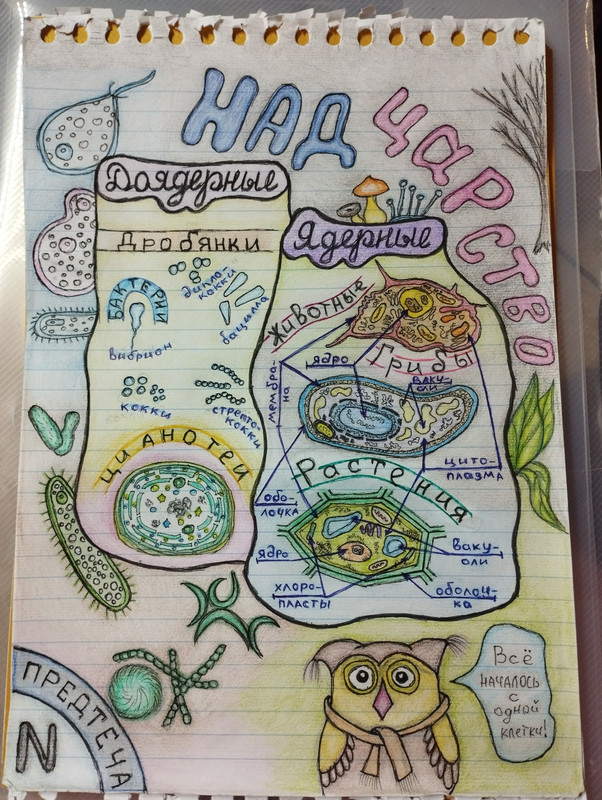 НАД
ЦАРСТВО
Доядерные
Дробянки
БАКТЕРИИ
дипло-
кокки
бацилла
вибрион
кокки
стрепто-
кокки
цианотеи
Ядерные
Животные
ядро
Грибы
мембра-
на
ваку-
оли
цито-
плазма
Растения
обо-
лочка
ядро
ваку-
оли
хлоро-
пласты
оболоч-
ка
ПРЕДТЕЧА
N
Всё
началось
с
одной
клетки!